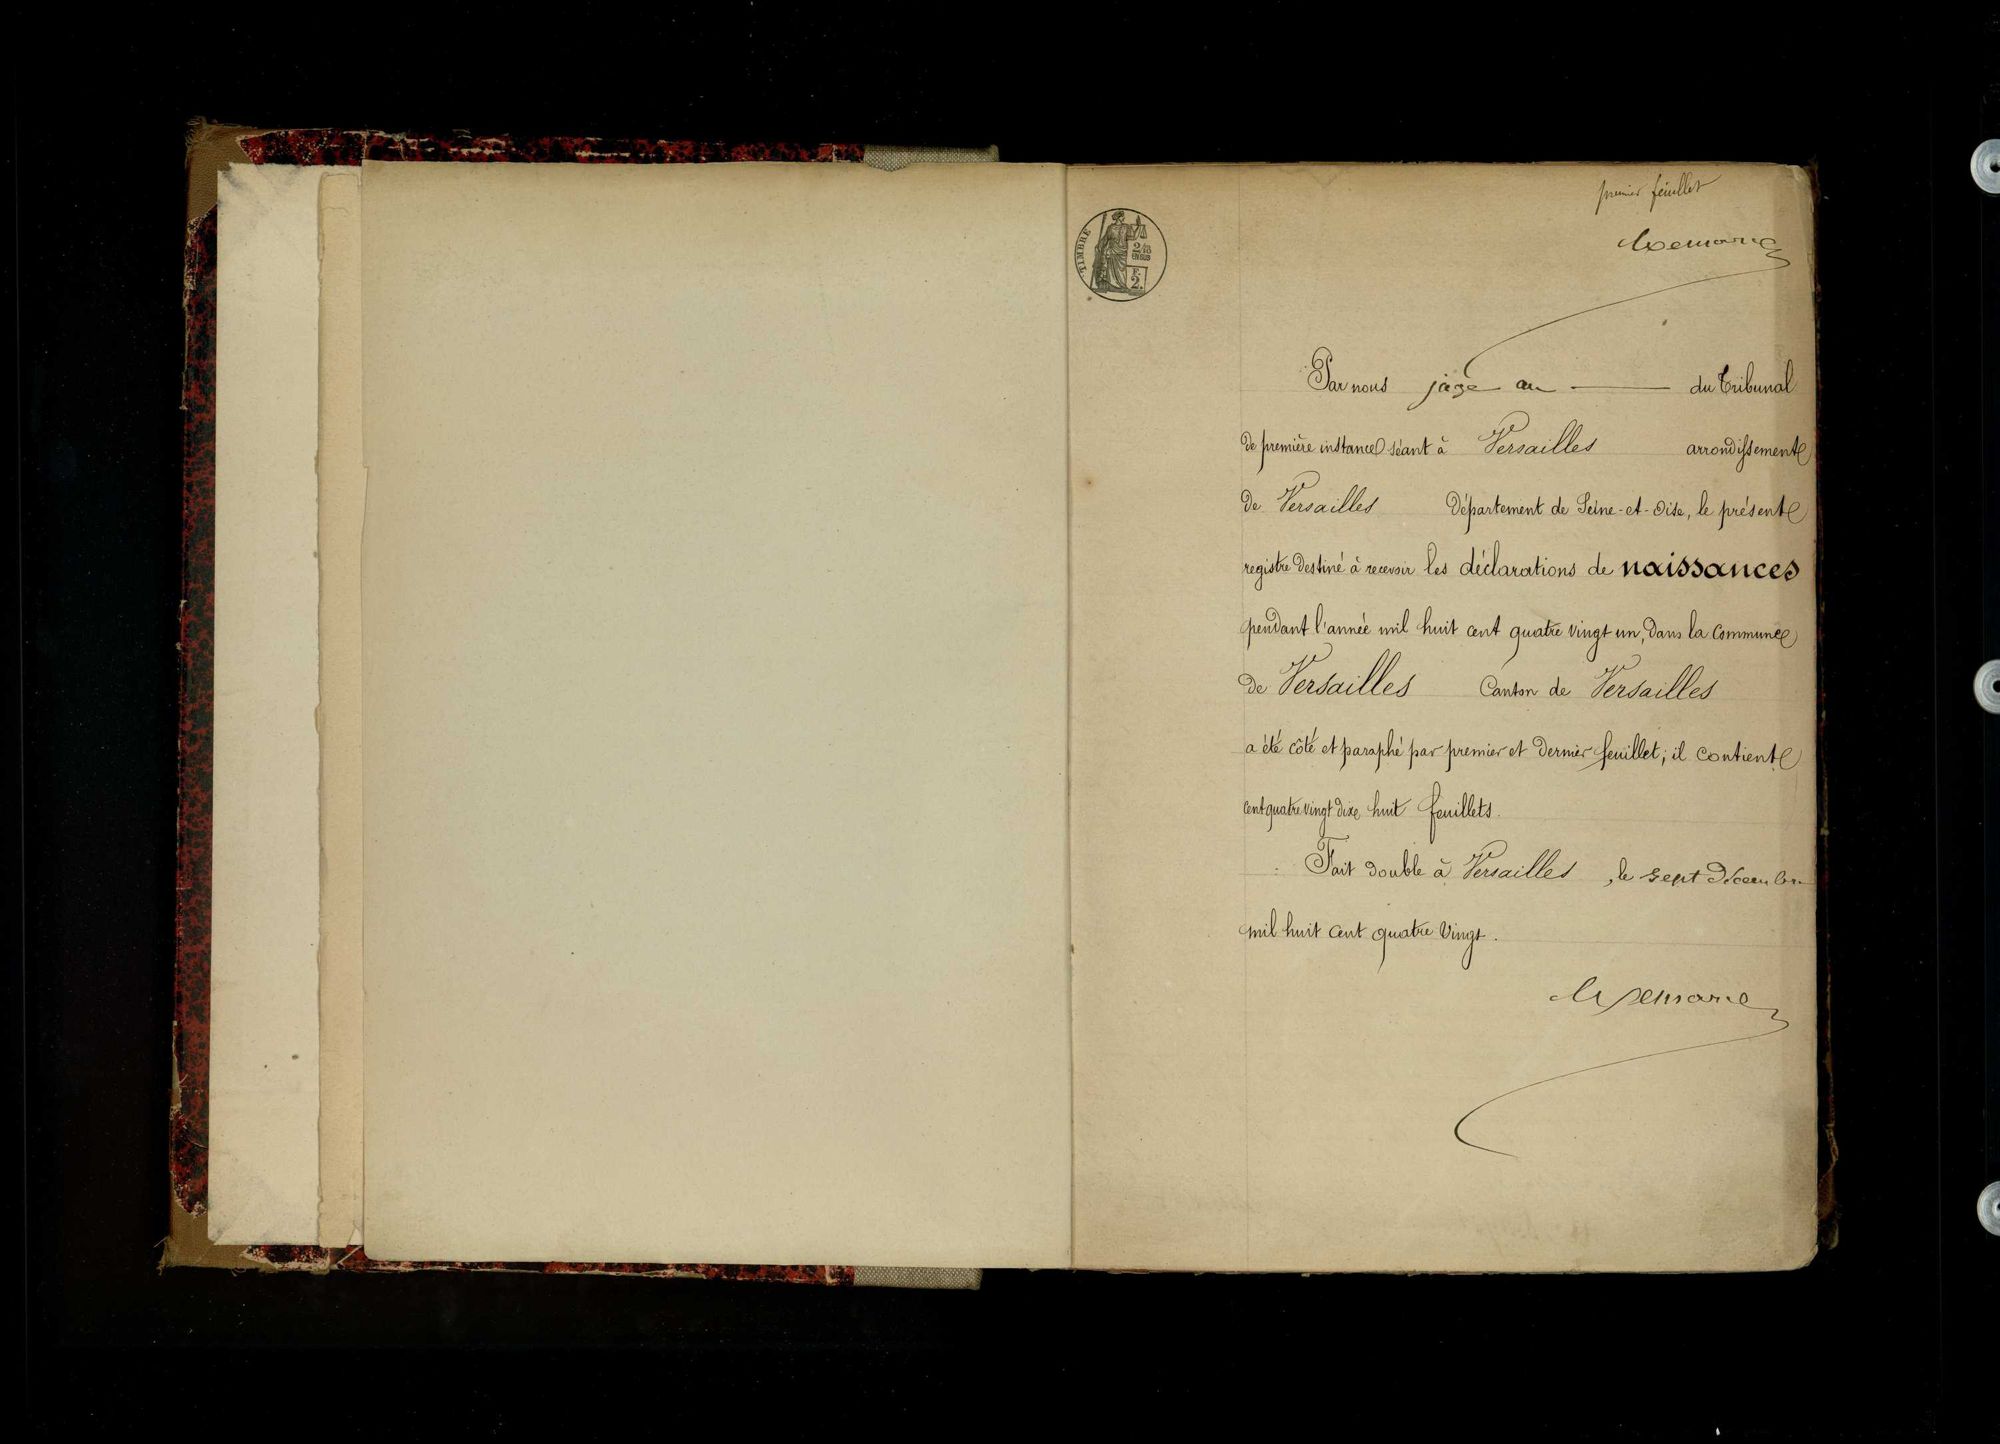 premier feuillet
TIMBRE
2/10
EN SUS
F.
2.
Par nous juge au du Tribunal
de première instance séant à Versailles arrondissement
de Versailles Département de Seine-et-Oise, le présent
registre destiné à recevoir les déclarations de naissances
pendant l'année mil huit cent quatre vingt un, dans la commune
de Versailles Canton de Versailles
a été côté et paraphé par premier et dernier feuillet; il contient
cent quatre vingt dixe huit feuillets.
Fait double à Versailles, le sept Décembre
mil huit cent quatre vingt.